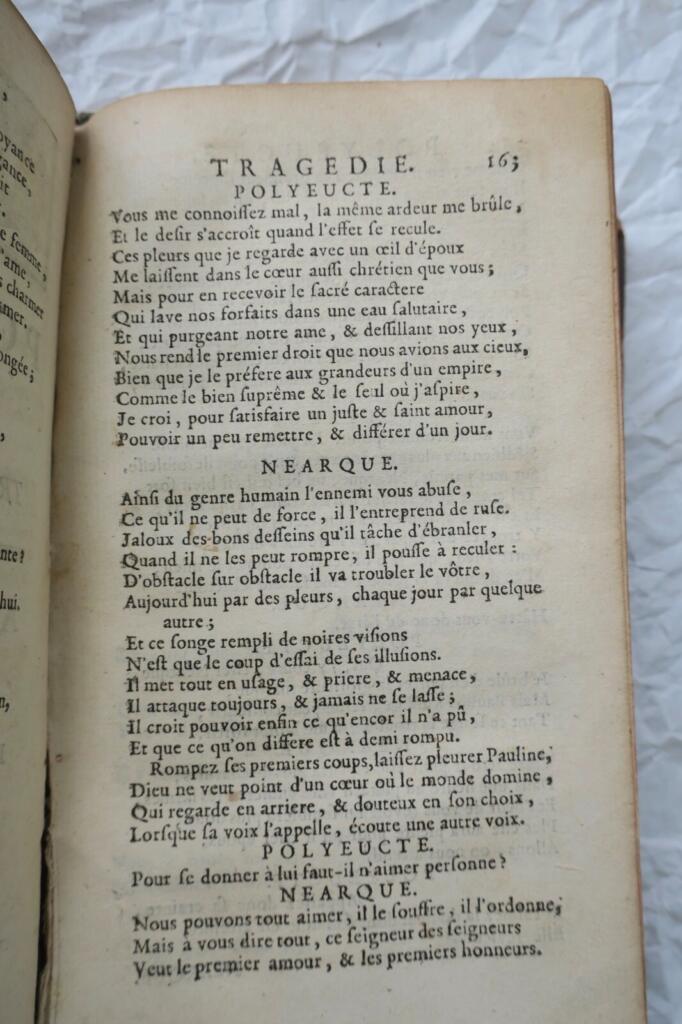 oyance
gance,
it
e femme,
'ame,
s charmer
imer.
ongée;
nte?
hui.
n,
TRAGEDIE. 163
POLYEUCTE.
Vous me connoiſſez mal, la même ardeur me brûle,
Et le deſir s'accroît quand l'effet ſe recule.
Ces pleurs que je regarde avec un œil d'époux
Me laiſſent dans le cœur auſſi chrétien que vous;
Mais pour en recevoir le ſacré caractere
Qui lave nos forfaits dans une eau ſalutaire,
Et qui purgeant notre ame, & deſſillant nos yeux,
Nous rend le premier droit que nous avions aux cieux,
Bien que je le préfere aux grandeurs d'un empire,
Comme le bien ſuprême & le ſeul où j'aſpire,
Je croi, pour ſatisfaire un juſte & ſaint amour,
Pouvoir un peu remettre, & différer d'un jour.
NEARQUE.
Ainſi du genre humain l'ennemi vous abuſe,
Ce qu'il ne peut de force, il l'entreprend de ruſe.
Jaloux des bons deſſeins qu'il tâche d'ébranler,
Quand il ne les peut rompre, il pouſſe à reculer:
D'obſtacle ſur obſtacle il va troubler le vôtre,
Aujourd'hui par des pleurs, chaque jour par quelque
autre;
Et ce ſonge rempli de noires viſions
N'eſt que le coup d'eſſai de ſes illuſions.
Il met tout en uſage, & priere, & menace,
Il attaque toujours, & jamais ne ſe laſſe;
Il croit pouvoir enfin ce qu'encor il n'a pû,
Et que ce qu'on differe eſt à demi rompu.
Rompez ſes premiers coups, laiſſez pleurer Pauline,
Dieu ne veut point d'un cœur où le monde domine,
Qui regarde en arriere, & douteux en ſon choix,
Lorſque ſa voix l'appelle, écoute une autre voix.
POLYEUCTE.
Pour ſe donner à lui faut-il n'aimer perſonne?
NEARQUE.
Nous pouvons tout aimer, il le ſouffre, il l'ordonne;
Mais à vous dire tout, ce ſeigneur des ſeigneurs
Veut le premier amour, & les premiers honneurs.